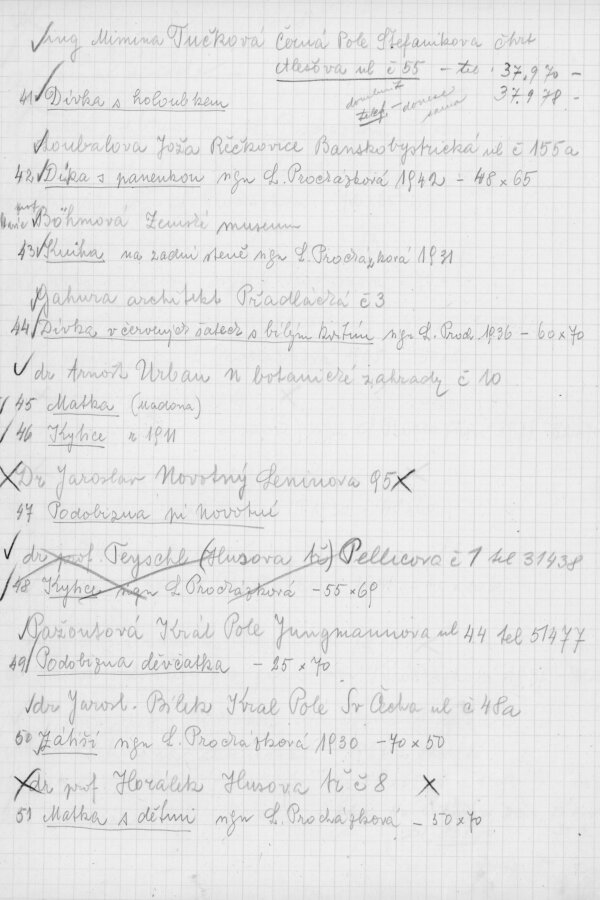 Ing Mimina Tučková Černá Pole Stefanikova čtvrt
Alešova ul č 55 – tel 37,970 –
37.978 –
41 Dívka s holoubkem
donese
sama
Loubalova Joža Řěčkovice Banskobystrická ul č 155a
42 Dívka s panenkou sgn L. Procházková 1942 – 48 x 65
prof
Marie Böhmová Zemské museum
43 Kniha na zadní stěně sgn L. Procházková 1931
Jahura architekt Přadlácká č 3
44 Dívka v červených šatech s bílým kvítím sgn L. Proch. 1936 – 60 x 70
dr Arnošt Urban u botanické zahrady č 10
45 Matka (madona)
46 Kytice r 1911
Dr Jaroslav Novotný Leninova 95
47 Podobizna pí Novotné
dr prof. Teyschl (Husova tř) Pellicova č 1 tel 31438
48 Kytice sgn L Procházková – 55 x 69
Pažoutová Král Pole Jungmannova ul 44 tel 51477
49 Podobizna děvčátka – 25 x 70
dr Jarosl. Bílek Kral Pole Sv Čecha ul č 48a
50 Zátiší sgn L. Procházková 1930 – 70 x 50
dr prof Horálek Husova tř č 8
51 Matka s dětmi sgn L. Procházková – 50 x 70